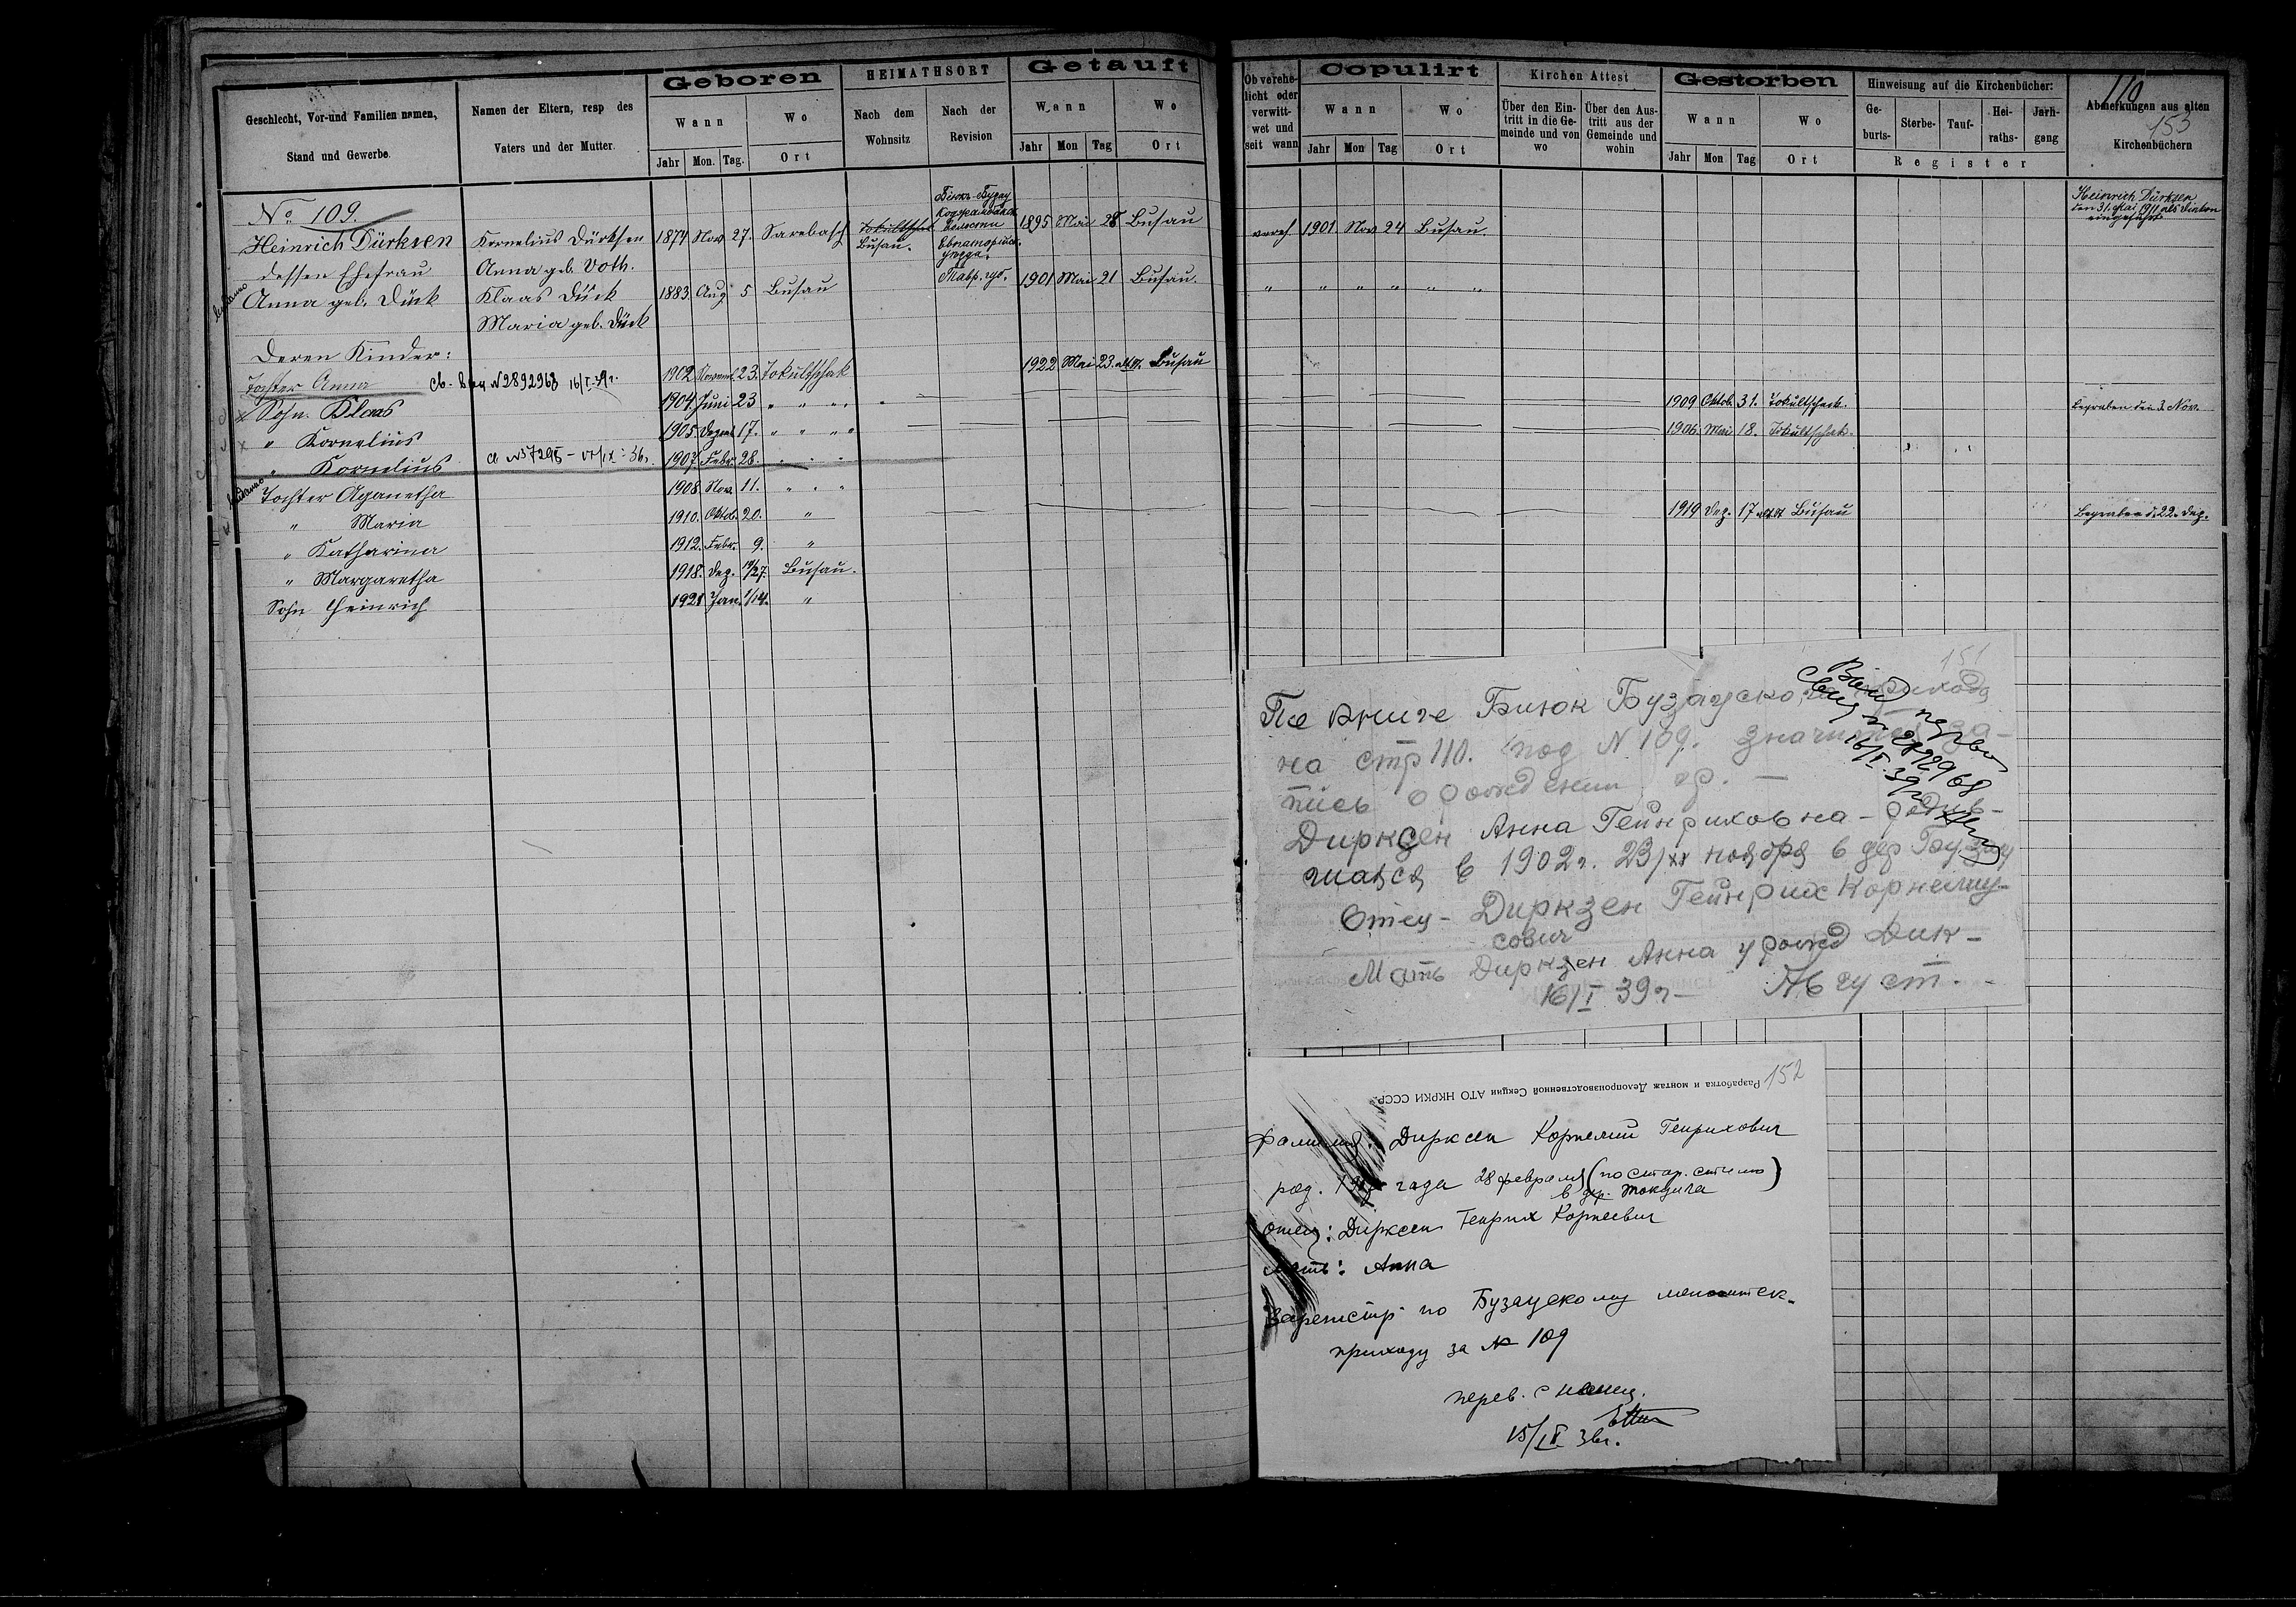 Geschlecht, Vor-und Familien namen, Stand und Gewerbe.
Namen der Eltern, resp des Vaters und der Mutter.
Geboren
Wann
Jahr Mon. Tag.
Wo
Ort
HEIMATHSORT
Nach dem Wohnsitz
Nach der Revision
Getauft
Wann
Jahr Mon Tag
Wo
Ort
Ob verehe-
licht oder
verwitt-
wet und
seit wann
Copulirt
Wann
Jahr Mon Tag
Wo
Ort
Kirchen Attest
Über den Ein-
tritt in die Ge-
meinde und von
wo
Über den Aus-
tritt aus der
Gemeinde und
wohin
Gestorben
Wann
Jahr Mon Tag
Wo
Ort
Hinweisung auf die Kirchenbücher:
Ge-
burts-
Sterbe-
Tauf-
Hei-
raths-
Jarh-
gang
Register
110
Abmerkungen aus alten
153
Kirchenbüchern
No 109.
Heinrich Dürksen Kornelius Dürksen 1874 Nov 27. Sarebasch Tokultschak Busau. 1895 Mai 28 Busau vereh. 1901 Nov 24 Busau.
Бузау
Волости
Евпаторійск.
уезда.
Тавр. губ.
Heinrich Dürksen
den 31. Mai 1911 als Diakon
eingeführt
dessen Ehefrau Anna geb. Voth.
Anna geb. Dück Klaas Dück 1883. Aug 5 Busau 1901 Mai 21 Busau. " " " " " "
Maria geb. Dück
Deren Kinder:
Tochter Anna N 2892968 16/I-39г. 1902 Novemb. 23. Tokultschak 1922 Mai 23. alt. st. Busau
x Sohn. Klaas 1904. Juni 23 " " " " 1909 Oktob. 31. Tokultschak. begraben den 3. Nov.
x " Kornelius 1905. Dezemb. 17. " " " " 1906. Mai 18. Tokultschak.
" Kornelius 1907. Febr. 28. " " "
Tochter Aganetha 1908. Nov. 11. " " "
" Maria 1910. Oktob. 20. " 1919 Dez. 17 alt. st Busau Begraben d. 22. Dez.
" Katharina 1912. Febr. 9. "
" Margaretha 1918. Dez. 14/27. Busau.
Sohn Heinrich 1921 Jan. 1/14. "
151
По книге Биюк Бузауского прихода
на стр 110. под N 109. значится за-
пись о рождении гр. —
Дирксен Анна Гейнриховна - родив-
шаяся в 1902 г. 23/XI ноября в дер Бузау
Отец - Диркзен Гейнрих Корнелиу-
сович
Мать Диркзен Анна урожд Дик -
16/I 39 г - Август.
2892968
16/I. 39 г
152
Разработка и монтаж Делопроизводственной Секции АТО НКРКИ СССР.
Фамилия: Дирксен Корнелий Генрихович
род. года 28 февраля (по стар. стилю)
в дер.
Отец: Дирксен Генрих Корнеевич
Мать: Анна
Зарегистр по Бузаускому менонитск.
приходу за № 109
перев. с немец.
15/IX 36 г.